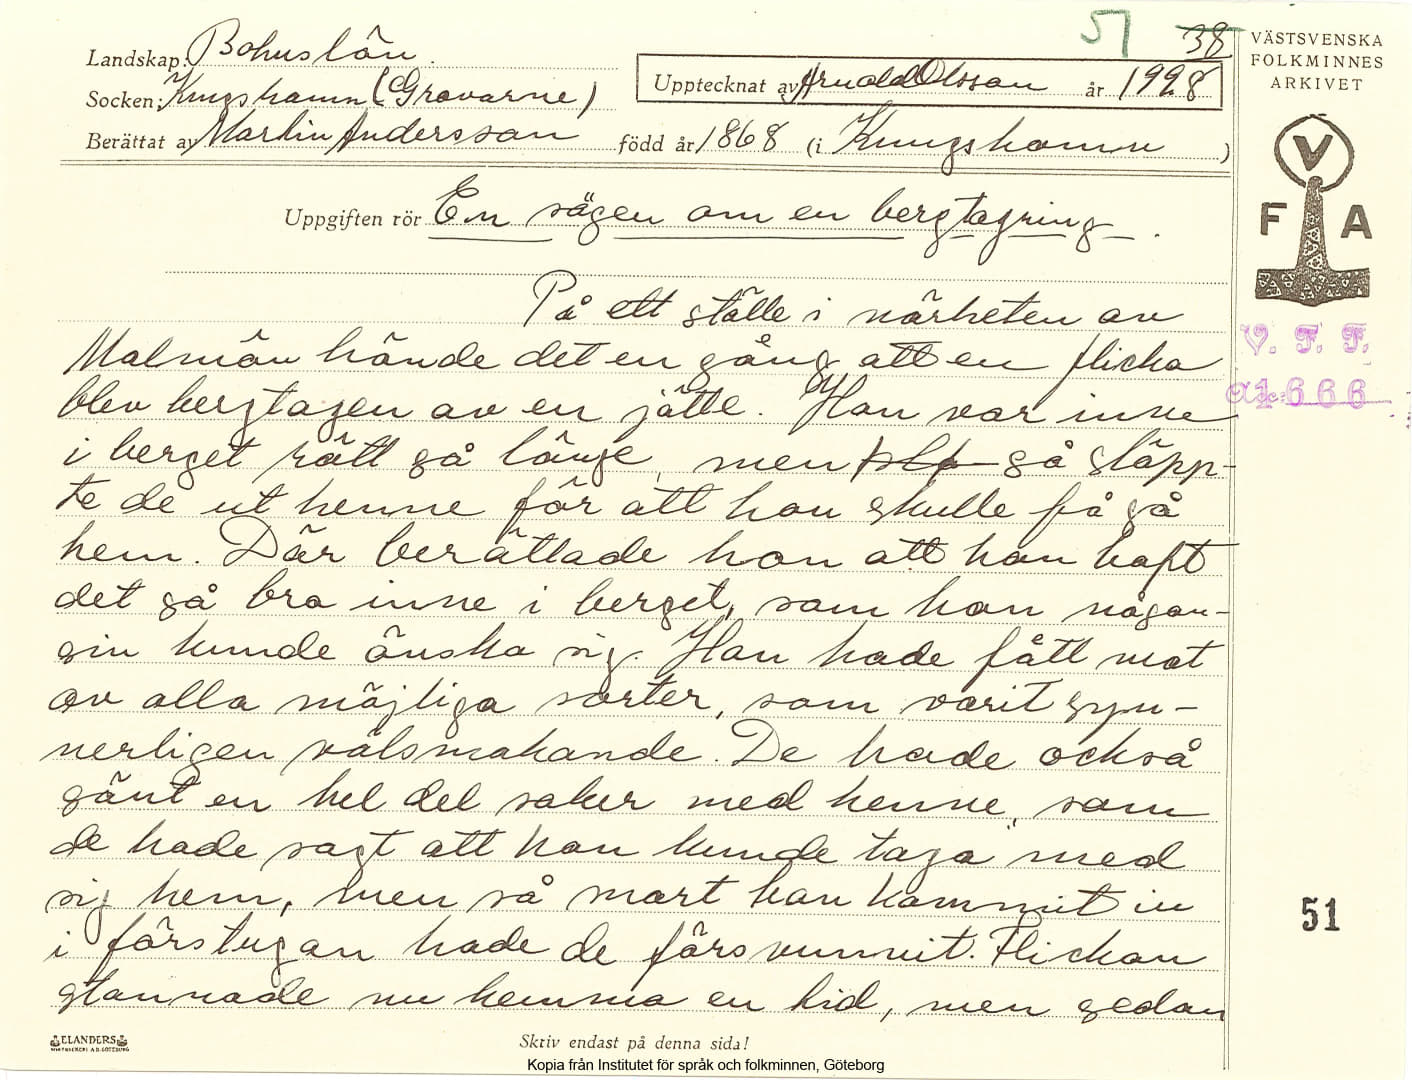 51 38
Landskap: Bohuslän
Socken: Kungshamn (Gravarne)
Upptecknat av Arnold Olsson år 1928
Berättat av Martin Andersson född år 1868 (i Kungshamn)
Uppgiften rör En sägen om en bergtagning.
På ett ställe i närheten av
Malmön hände det en gång att en flicka
blev bergtagen av en jätte. Hon var inne
i berget rätt så länge, men så släpp-
te de ut henne för att hon skulle få gå
hem. Där berättade hon att hon haft
det så bra inne i berget, som hon någon-
sin kunde önska sig. Hon hade fått mat
av alla möjliga sorter, som varit syn-
nerligen välsmakande. De hade också
sänt en hel del saker med henne, som
de hade sagt att hon kunde taga med
sig hem, men så snart hon kommit in
i förstugan hade de försvunnit. Flickan
stannade nu hemma en tid, men sedan
VÄSTSVENSKA
FOLKMINNES
ARKIVET
V
F A
V. F. F.
acc: 1666
51
ELANDERS
Skriv endast på denna sida!
Kopia från Institutet för språk och folkminnen, Göteborg